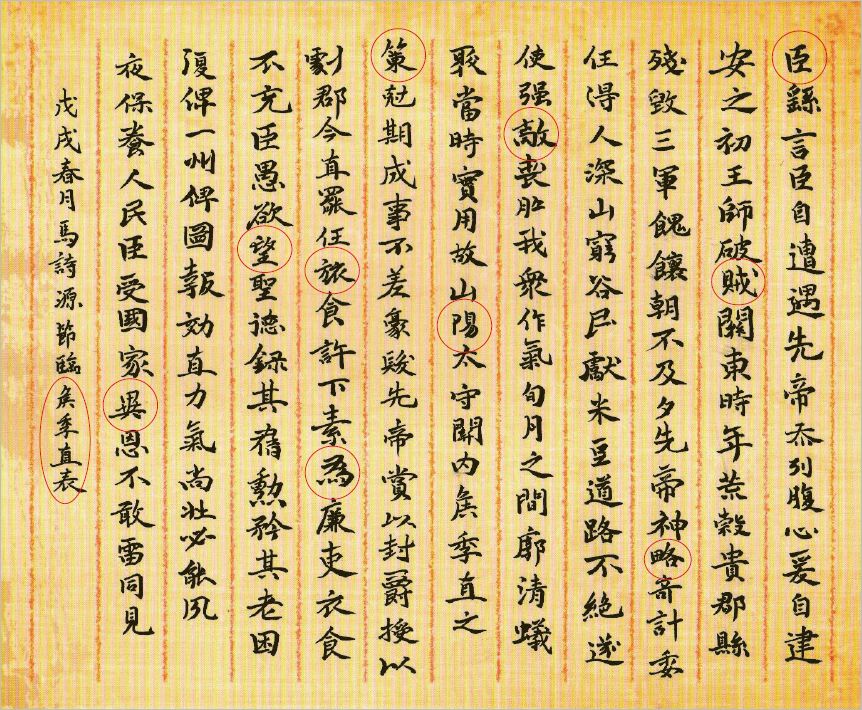 臣繇言臣自遭遇先帝忝列腹心爰自建
安之初王師破賊關東時年荒穀貴郡縣
殘毀三軍餽饟朝不及夕先帝神略奇計委
任得人深山窮谷民獻米豆道路不絕遂
使强敵喪膽我衆作氣旬月之間廓清蟻
聚當時實用故山陽太守關內侯季直之
策尅期成事不差豪髮先帝賞以封爵授以
劇郡今直罷任旅食許下素為廉吏衣食
不充臣愚欲望聖德錄其舊勳矜其老困
復俾一州俾圖報効直力氣尚壯必能夙
夜保養人民臣受國家異恩不敢雷同見
戊戌春月馬詩源節臨侯季直表